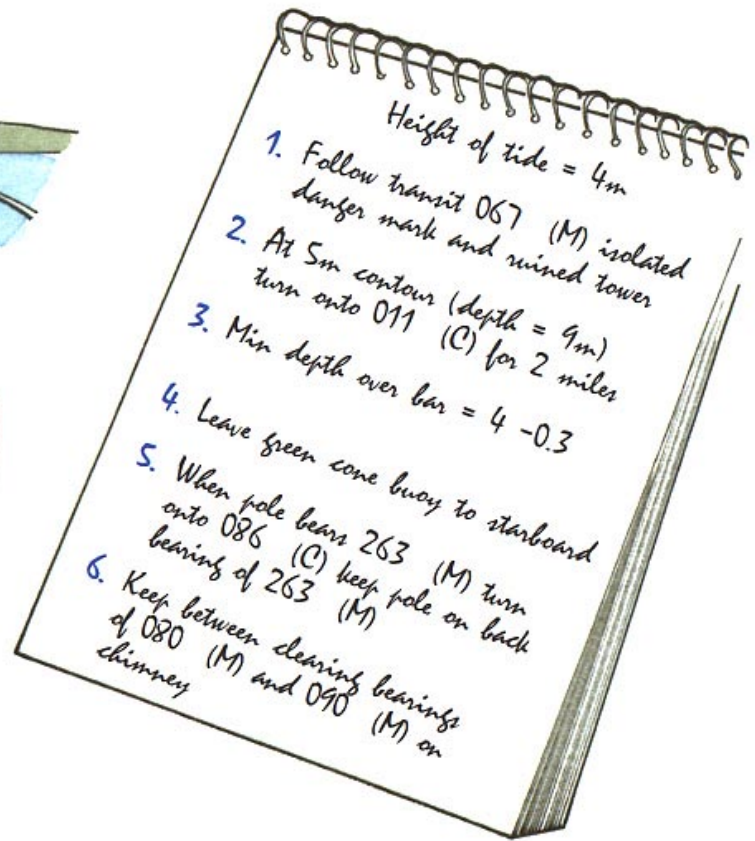 Height of tide = 4m
1. Follow transit 067 (M) isolated
danger mark and ruined tower
2. At 5m contour (depth = 9m)
turn onto 011 (C) for 2 miles
3. Min depth over bar = 4 -0.3
4. Leave green cone buoy to starboard
5. When pole bears 263 (M) turn
onto 086 (C) keep pole on back
bearing of 263 (M)
6. Keep between clearing bearings
of 080 (M) and 090 (M) on
chimney